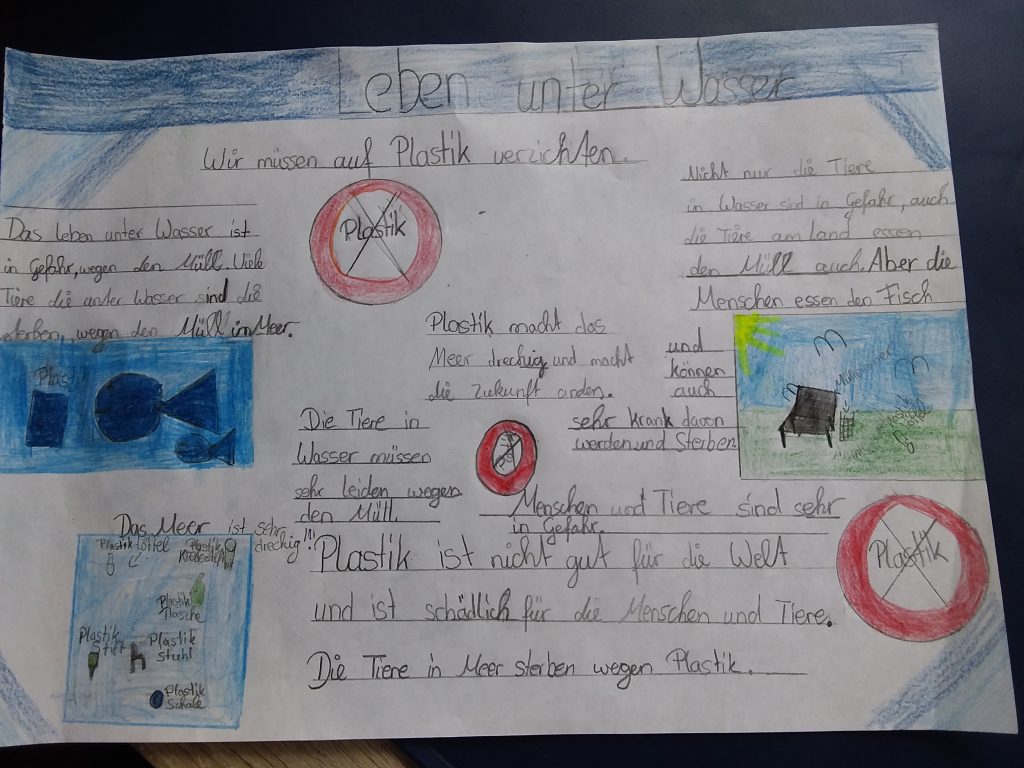 Leben unter Wasser
Wir müssen auf Plastik verzichten.
Das Leben unter Wasser ist
in Gefahr, wegen den Müll. Viele
Tiere die unter Wasser sind die
sterben, wegen den Müll in Meer.
Plastik
Plastik
Nicht nur die Tiere
in Wasser sind in Gefahr, auch
die Tiere am land essen
den Müll auch. Aber die
Menschen essen den Fisch
und
können
auch
sehr krank davon
werden und Sterben
Plastik macht das
Meer drechig und macht
die Zukunft anden.
Die Tiere in
Wasser müssen
sehr leiden wegen
den Müll.
Mülleimer
Menschen und Tiere sind sehr
in Gefahr.
Das Meer ist sehr
drechig!!!
Plastik löffel
Plastik
Plastik
flasche
Plastik
Stift
Plastik
Stuhl
Plastik
Schale
Plastik ist nicht gut für die Welt
und ist schädlich für die Menschen und Tiere.
Die Tiere in Meer sterben wegen Plastik.
Plastik